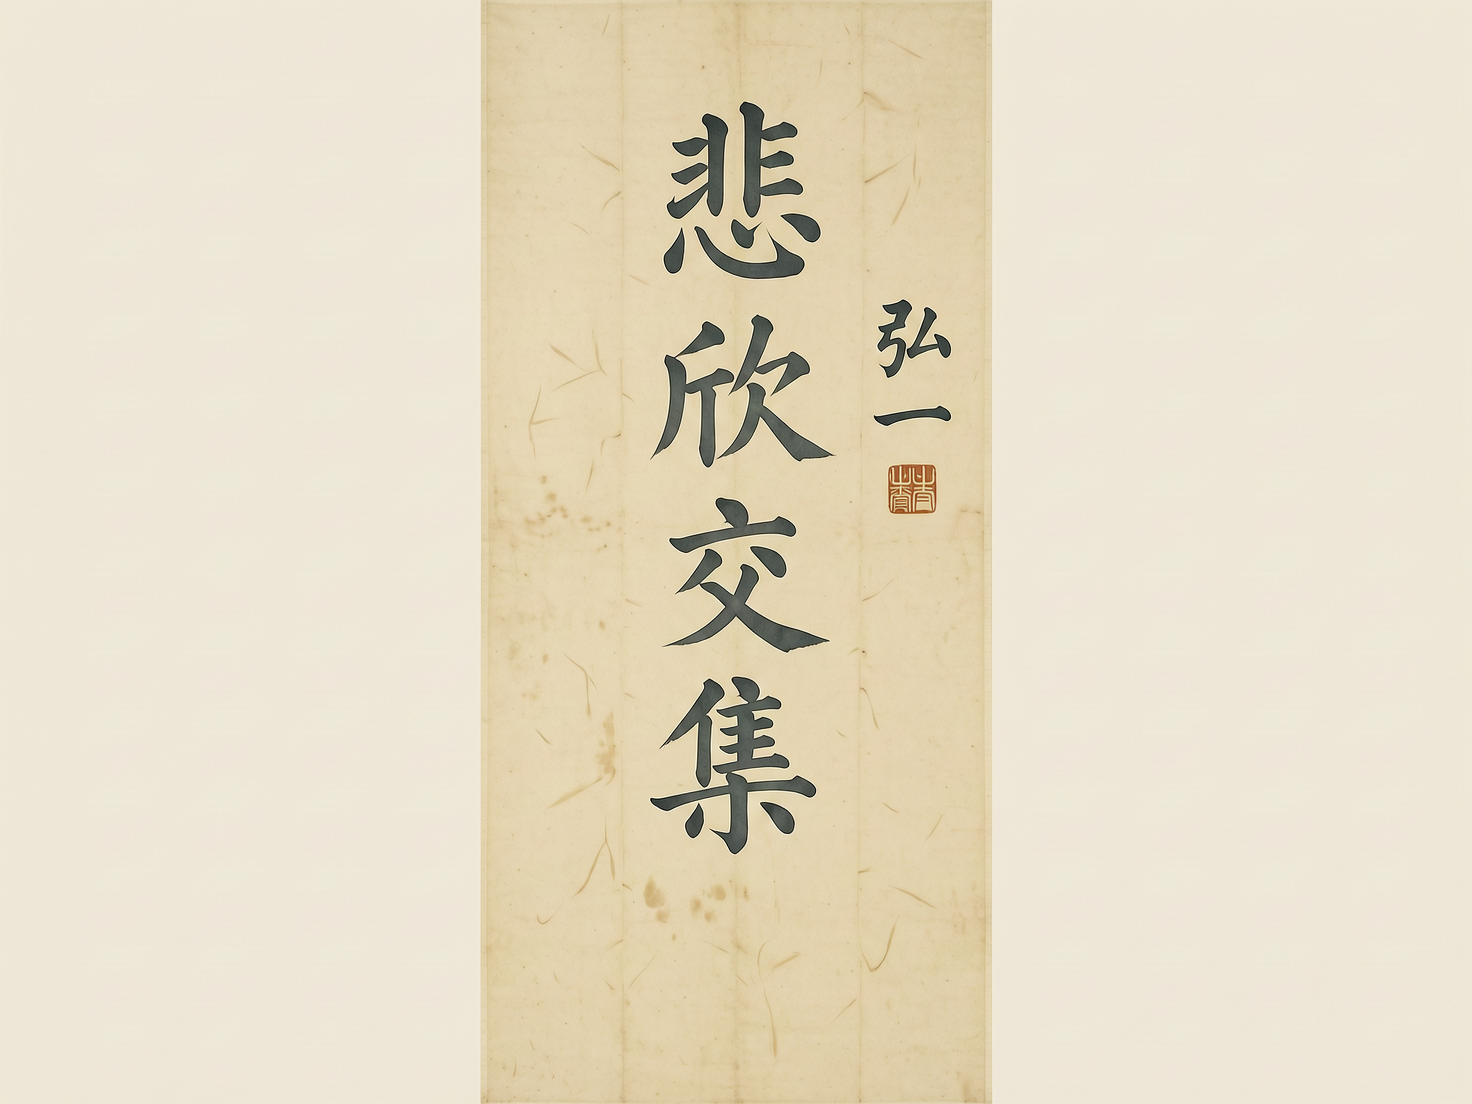 弘一
悲欣交集